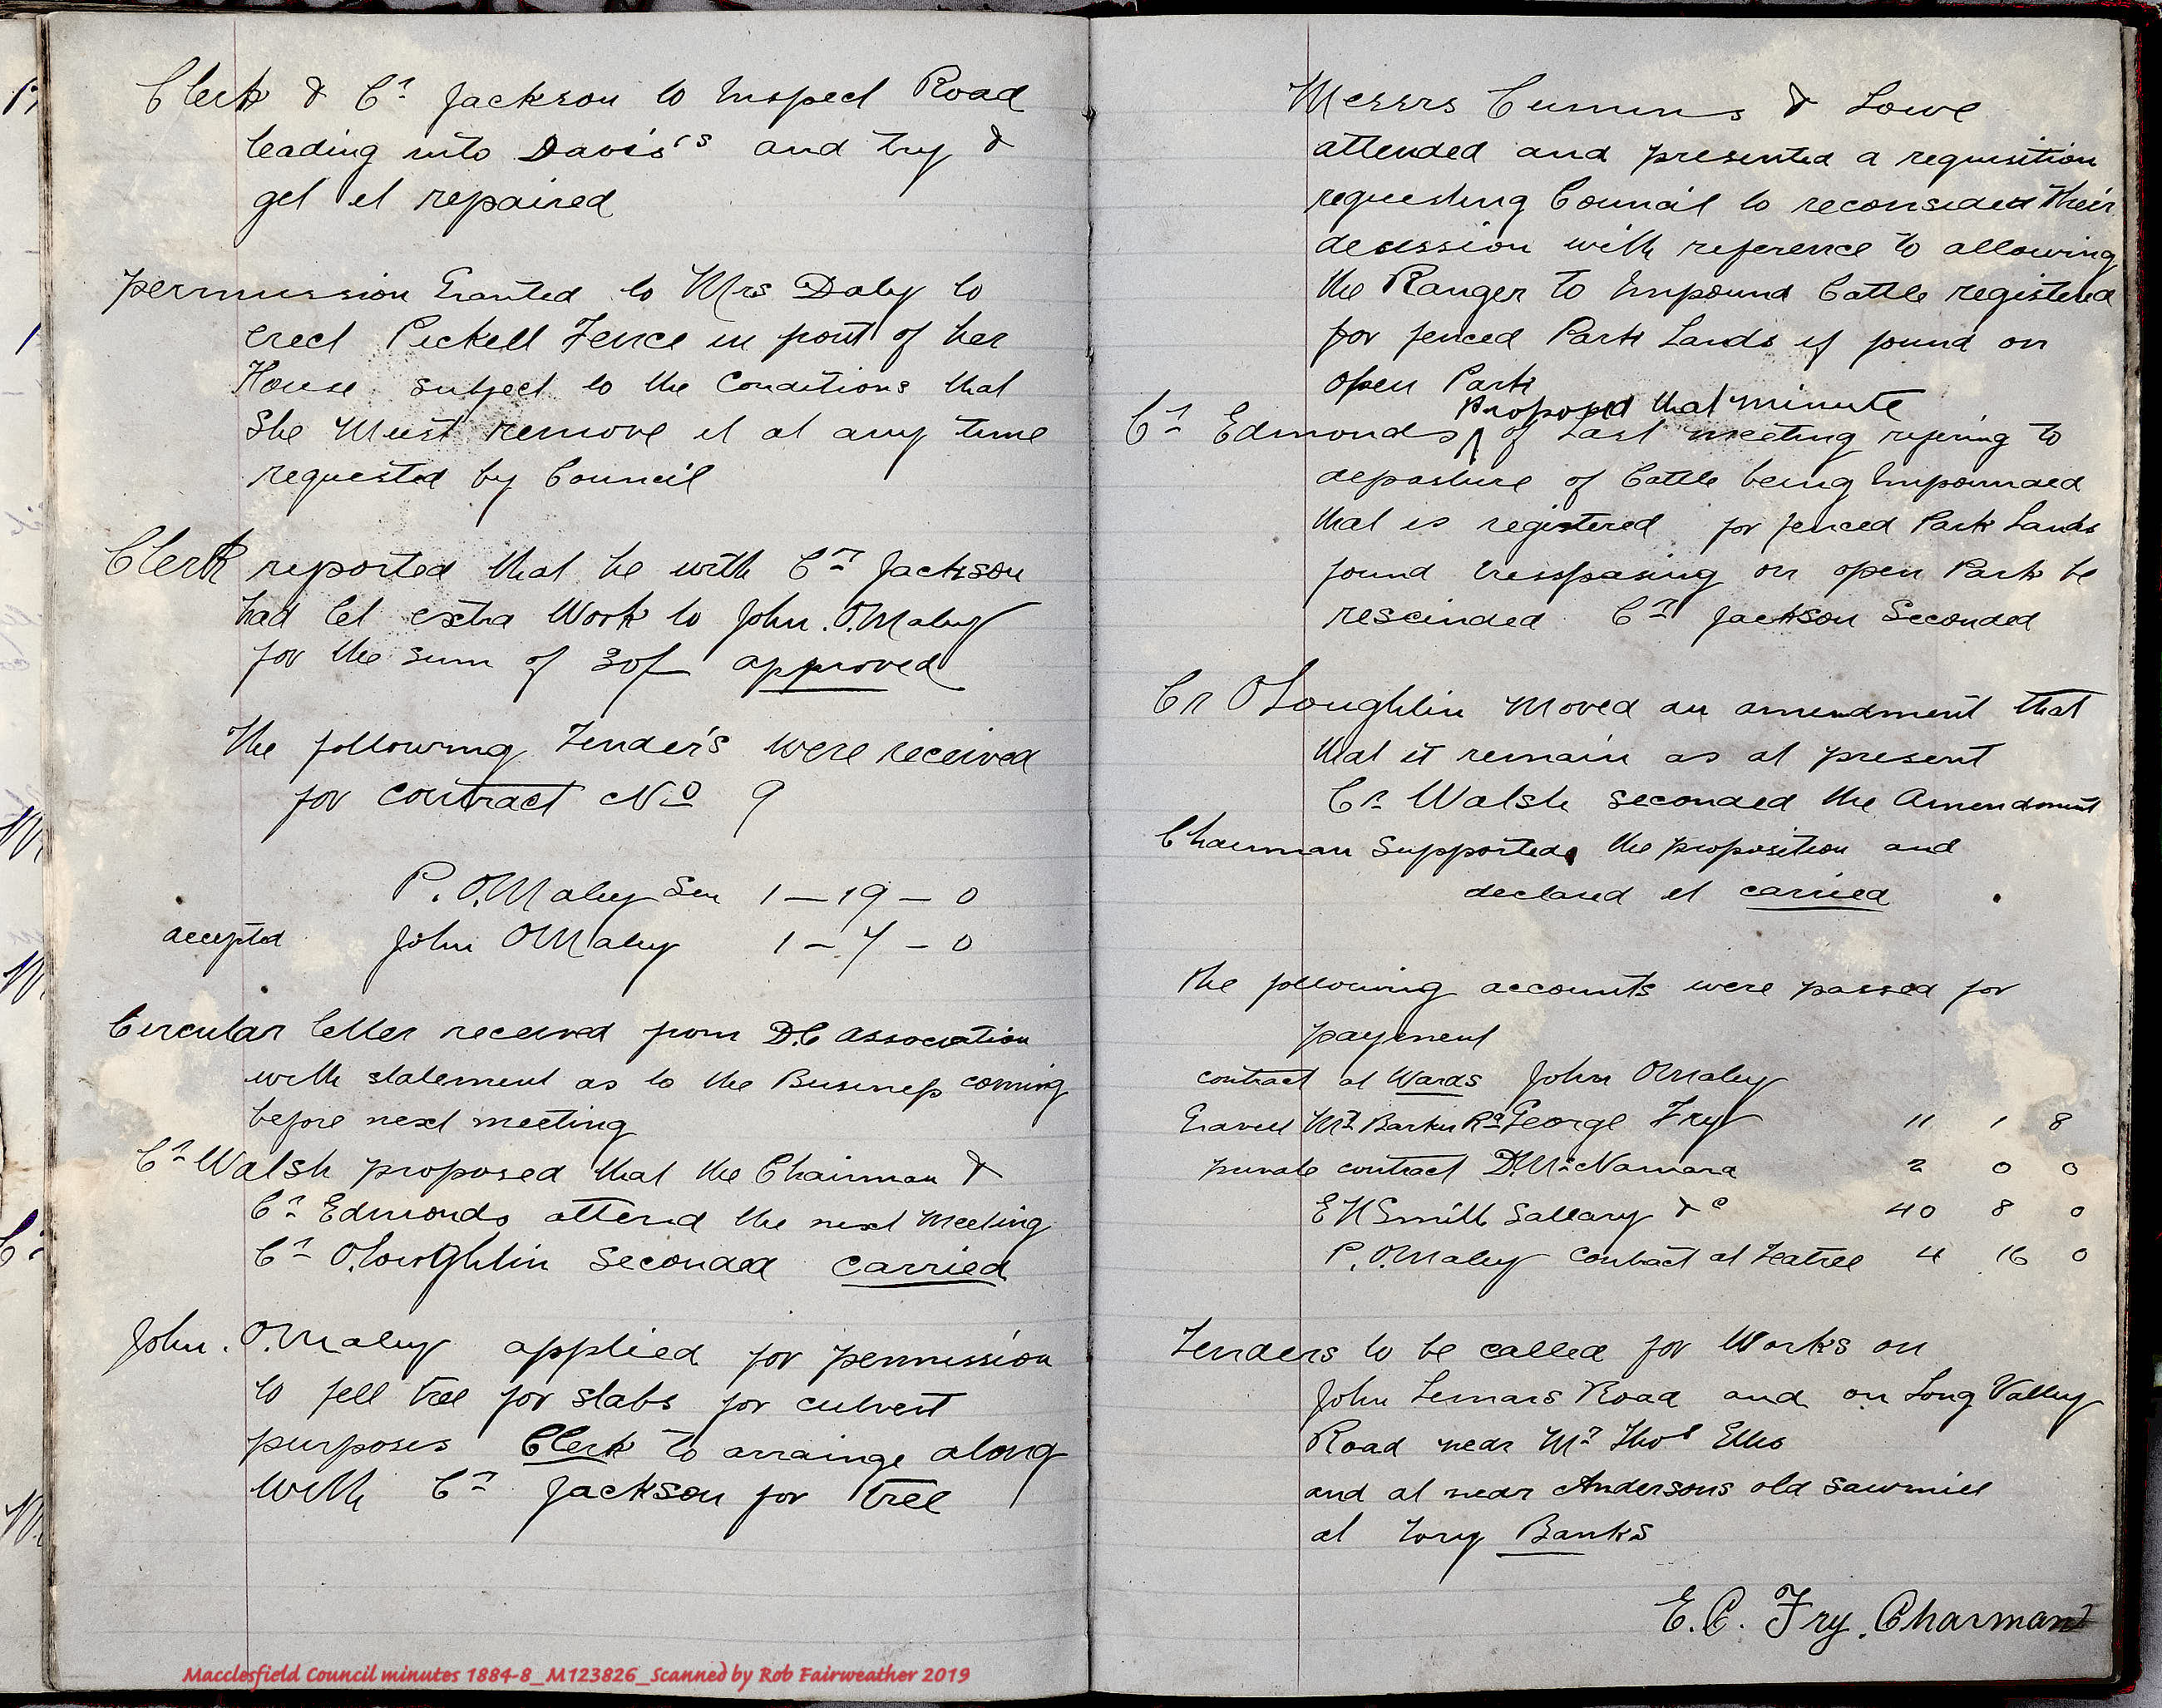 Clerk & Cr Jackson to Inspect Road
leading into Davis's and try &
get it repaired
permission Granted to Mrs Daly to
erect Pickett Fence in front of her
House subject to the Conditions that
She Must remove it at any time
requested by Council
Clerk reported that he with Cr Jackson
had let extra Work to John. O.Maley
for the sum of 30/- approved
The following Tender's were received
for contract No 9
P. O.Maley Sen 1 - 19 - 0
accepted John OMaley 1 - 7 - 0
Circular letter received from D.C association
with statement as to the Business coming
before next meeting
Cr Walsh proposed that the Chairman &
Cr Edmonds attend the next Meeting
Cr O.Loughlin Seconded carried
John. O.Maley applied for permission
to fell tree for slabs for culvert
purposes Clerk to arrainge along
with Cr Jackson for tree
Messrs Cumins & Lowe
attended and presented a requisition
requesting Council to reconsider their
decission with reference to allowing
the Ranger to Impound Cattle registered
for fenced Park Lands if found on
open Park
Proposed that minute
Cr Edmonds of Last meeting refering to
depasture of Cattle being Impounded
that is registered for fenced Park Lands
found tresspasing on open Park be
rescinded Cr Jackson Seconded
Cr OLoughlin Moved an amendment that
that it remain as at present
Cr Walsh seconded the Amendment
Chairman Supported the proposition and
declared it carried
The following accounts were passed for
payement
contract at Wards John OMaley
Gravell Mt Barker Rd George Fry 11 1 8
private contract D. McNamara 2 0 0
E H Smith Sallary &c 40 8 0
P. O.Maley Contract at Teatree 4 16 0
Tenders to be called for Works on
John Lemars Road and on Long Valley
Road near Mr Thos Ellis
and at near Andersons old sawmill
at Banks
E. C. Fry. Charman
Macclesfield Council minutes 1884-8_M123826_Scanned by Rob Fairweather 2019